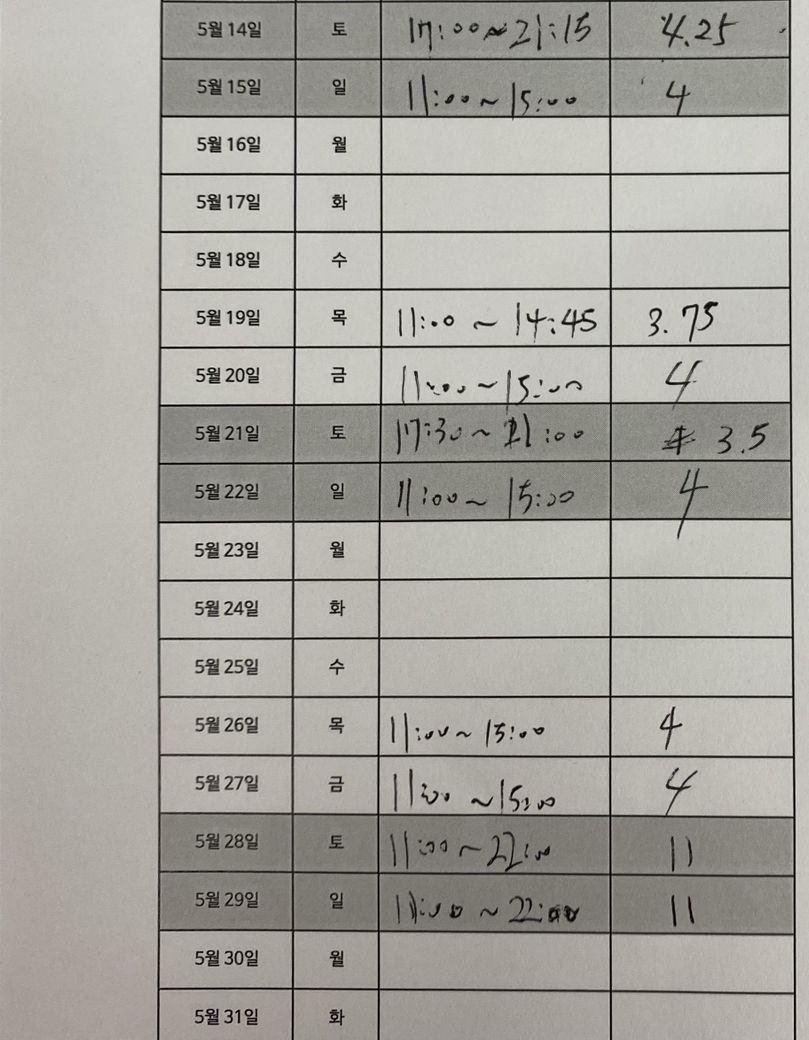 5월 14일 토 17:00~21:15 4.25
5월 15일 일 11:00~15:00 4
5월 16일 월
5월 17일 화
5월 18일 수
5월 19일 목 11:00 ~ 14:45 3.75
5월 20일 금 11:00 ~ 15:00 4
5월 21일 토 17:30 ~ 21:00 3.5
5월 22일 일 11:00 ~ 15:00 4
5월 23일 월
5월 24일 화
5월 25일 수
5월 26일 목 11:00 ~ 15:00 4
5월 27일 금 11:00 ~ 15:00 4
5월 28일 토 11:00 ~ 22:00 11
5월 29일 일 11:00 ~ 22:00 11
5월 30일 월
5월 31일 화